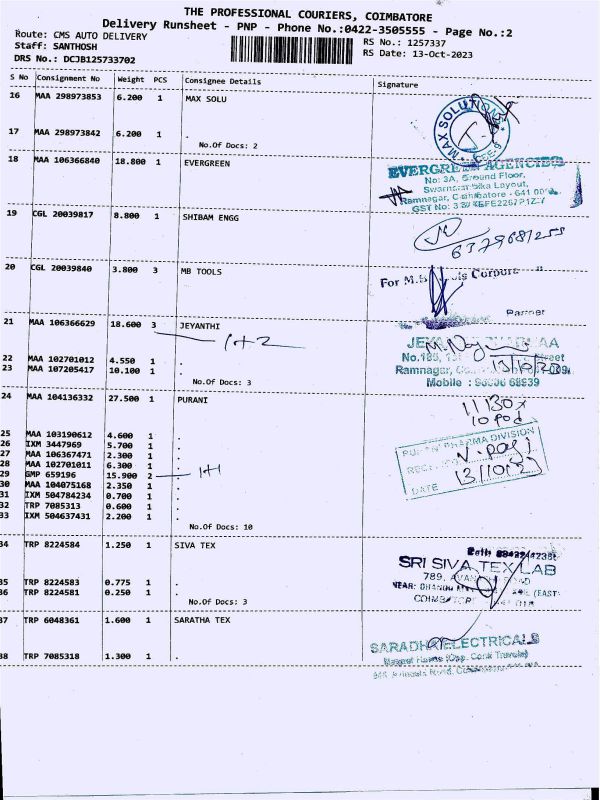 THE PROFESSIONAL COURIERS, COIMBATORE
Delivery Runsheet - PNP - Phone No.:0422-3505555 - Page No.:2
Route: CMS AUTO DELIVERY
RS No.: 1257337
Staff: SANTHOSH
RS Date: 13-Oct-2023
DRS No.: DCJB125733702
S No Consignment No Weight PCS Consignee Details Signature
16 MAA 298973853 6.200 1 MAX SOLU
MAX SOLUTIONS
17 MAA 298973842 6.200 1 .
No.Of Docs: 2
18 MAA 106366840 18.800 1 EVERGREEN
EVERGREEN AGENCIES
No: 3A, Ground Floor,
Layout,
Ramnagar, Coimbatore - 641
GST No:
19 CGL 20039817 8.800 1 SHIBAM ENGG
6379681255
20 CGL 20039840 3.800 3 MB TOOLS
For M.B
Partner
21 MAA 106366629 18.600 3 JEYANTHI
1+2
No.185,
Street
22 MAA 102701012 4.550 1 .
13/10/20
23 MAA 107205417 10.100 1 .
Ramnagar,
No.Of Docs: 3
Mobile : 68839
24 MAA 104136332 27.500 1 PURANI
10 pod
25 MAA 103190612 4.600 1 .
PHARMA DIVISION
26 IXM 3447969 5.700 1 .
27 MAA 106367471 2.300 1 .
28 MAA 102701011 6.300 1 .
29 GMP 659196 15.900 2 . 1+1
30 MAA 104075168 2.350 1 .
DATE
31 IXM 504784234 0.700 1 .
32 TRP 7085313 0.600 1 .
33 IXM 504637431 2.200 1 .
No.Of Docs: 10
34 TRP 8224584 1.250 1 SIVA TEX
SRI SIVA TEX LAB
789,
35 TRP 8224583 0.775 1 .
36 TRP 8224581 0.250 1 .
No.Of Docs: 3
37 TRP 6048361 1.600 1 SARATHA TEX
SARADHA ELECTRICALS
38 TRP 7085318 1.300 1 .